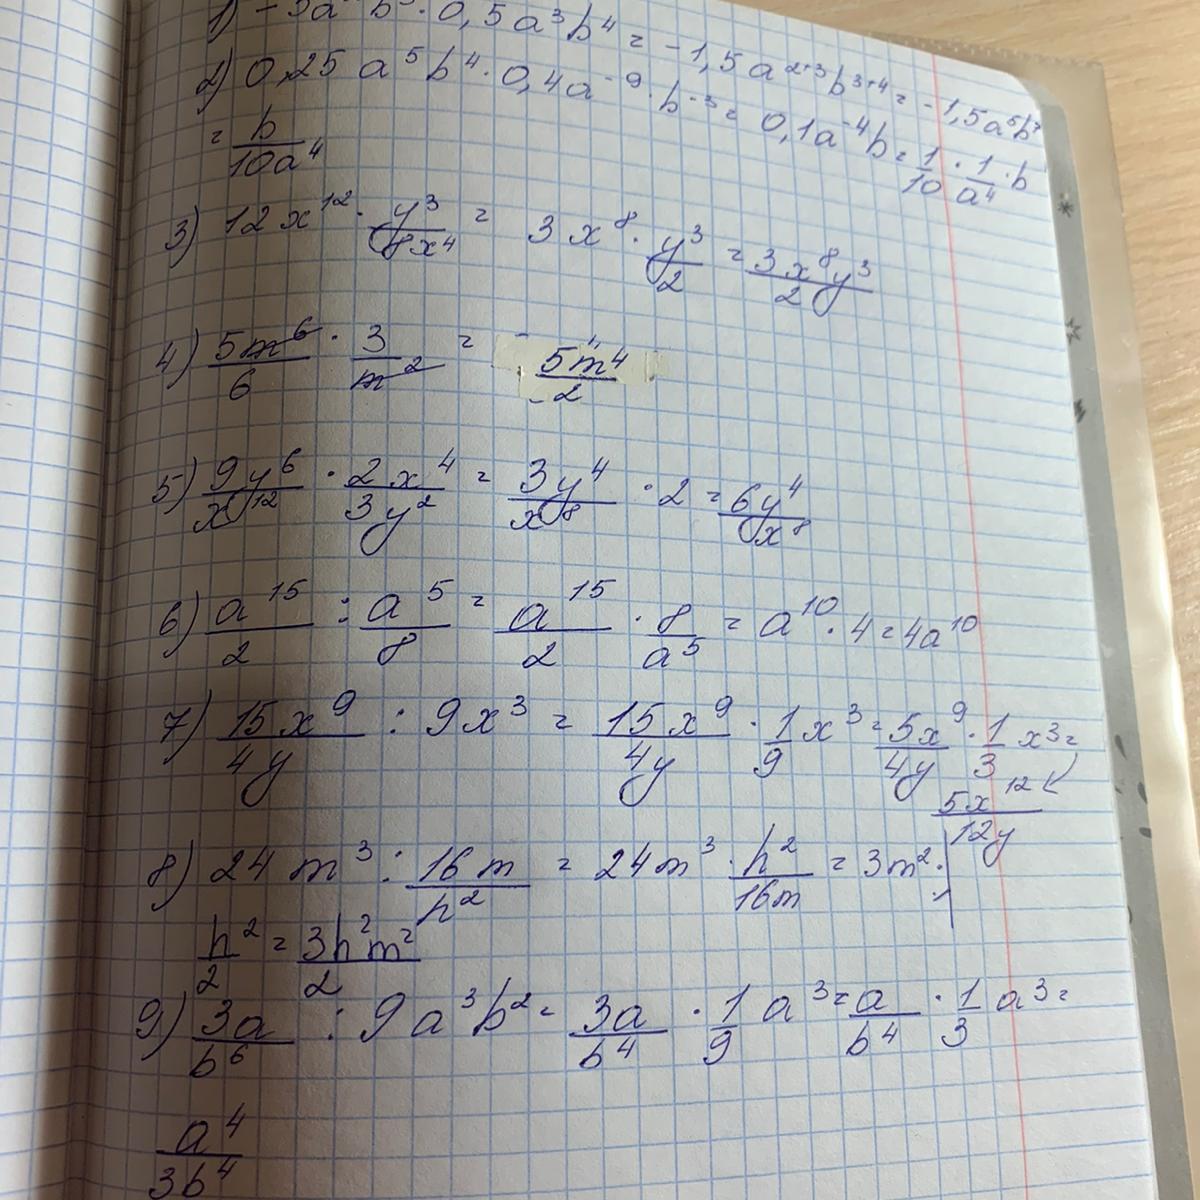 1) -3a² b³ · 0,5a³b⁴ = -1,5a²⁺³b³⁺⁴ = -1,5a⁵b⁷
2) 0,25 a⁵b⁴ · 0,4a⁻⁹ · b⁻³ = 0,1a⁻⁴b = 1/10 · 1/a⁴ · b
= b/10a⁴
3) 12x¹² · y³/8x⁴ = 3x⁸ · y³/2 = 3x⁸y³/2
4) 5m⁶/6 · 3/m² = 5m⁴/2
5) 9y⁶/x¹² · 2x⁴/3y² = 3y⁴/x⁸ · 2 = 6y⁴/x⁸
6) a¹⁵/2 : a⁵/8 = a¹⁵/2 · 8/a⁵ = a¹⁰ · 4 = 4a¹⁰
7) 15x⁹/4y : 9x³ = 15x⁹/4y · 1/9 x³ = 5x⁹/4y · 1/3 x³ =
5x¹²/12y
8) 24m³ : 16m/n² = 24m³ · n²/16m = 3m² ·
n²/2 = 3n²m²/2
9) 3a/b⁶ : 9a³b² = 3a/b⁴ · 1/9 a³ = a/b⁴ · 1/3 a³ =
a⁴/3b⁴